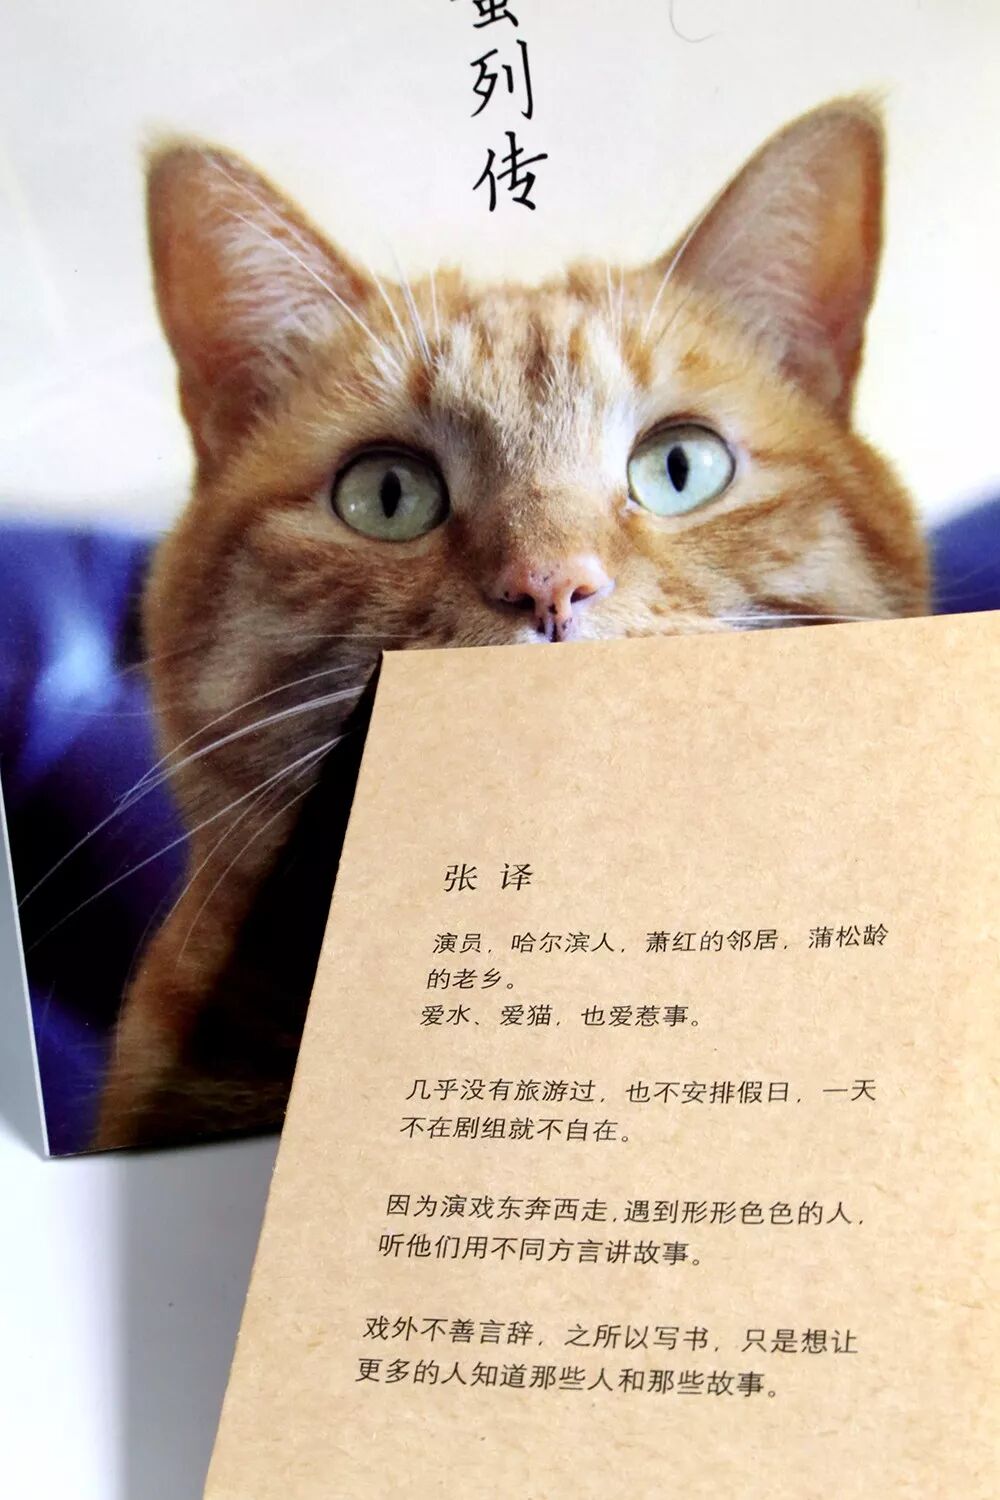 列
传
张 译
演员，哈尔滨人，萧红的邻居，蒲松龄
的老乡。
爱水、爱猫，也爱惹事。
几乎没有旅游过，也不安排假日，一天
不在剧组就不自在。
因为演戏东奔西走，遇到形形色色的人，
听他们用不同方言讲故事。
戏外不善言辞，之所以写书，只是想让
更多的人知道那些人和那些故事。